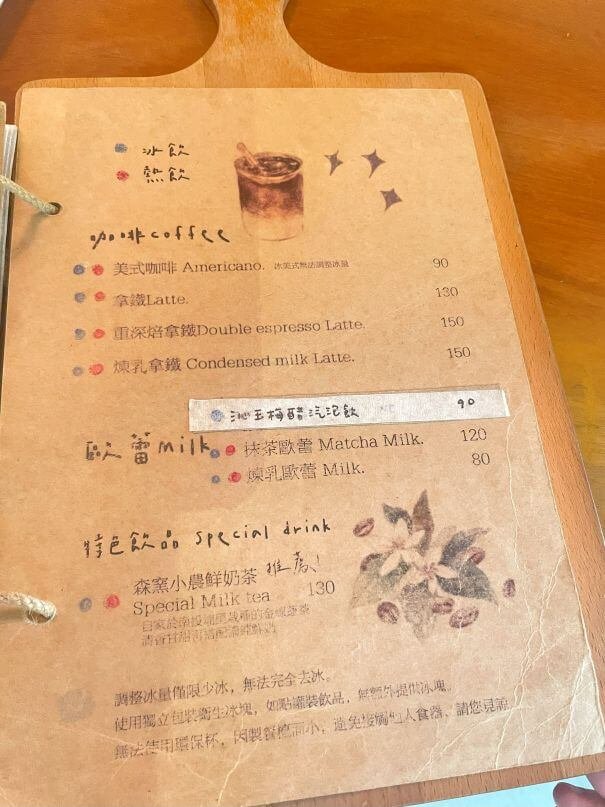 冰飲
熱飲
咖啡coffee
美式咖啡 Americano. 冰美式無法調整冰量 90
拿鐵Latte. 130
重深焙拿鐵Double espresso Latte. 150
煉乳拿鐵 Condensed milk Latte. 150
沁玉梅醋汽泡飲 90
歐蕾milk
抹茶歐蕾 Matcha Milk. 120
煉乳歐蕾 Milk. 80
特色飲品 special drink
森窯小農鮮奶茶 推薦!
Special Milk tea 130
自家於南投
調整冰量僅限少冰，無法完全去冰。
使用獨立包裝衛生冰塊，如點罐裝飲品，無額外提供冰塊。
無法使用環保杯，因製餐檯面小，避免接觸他人食器，請您見諒